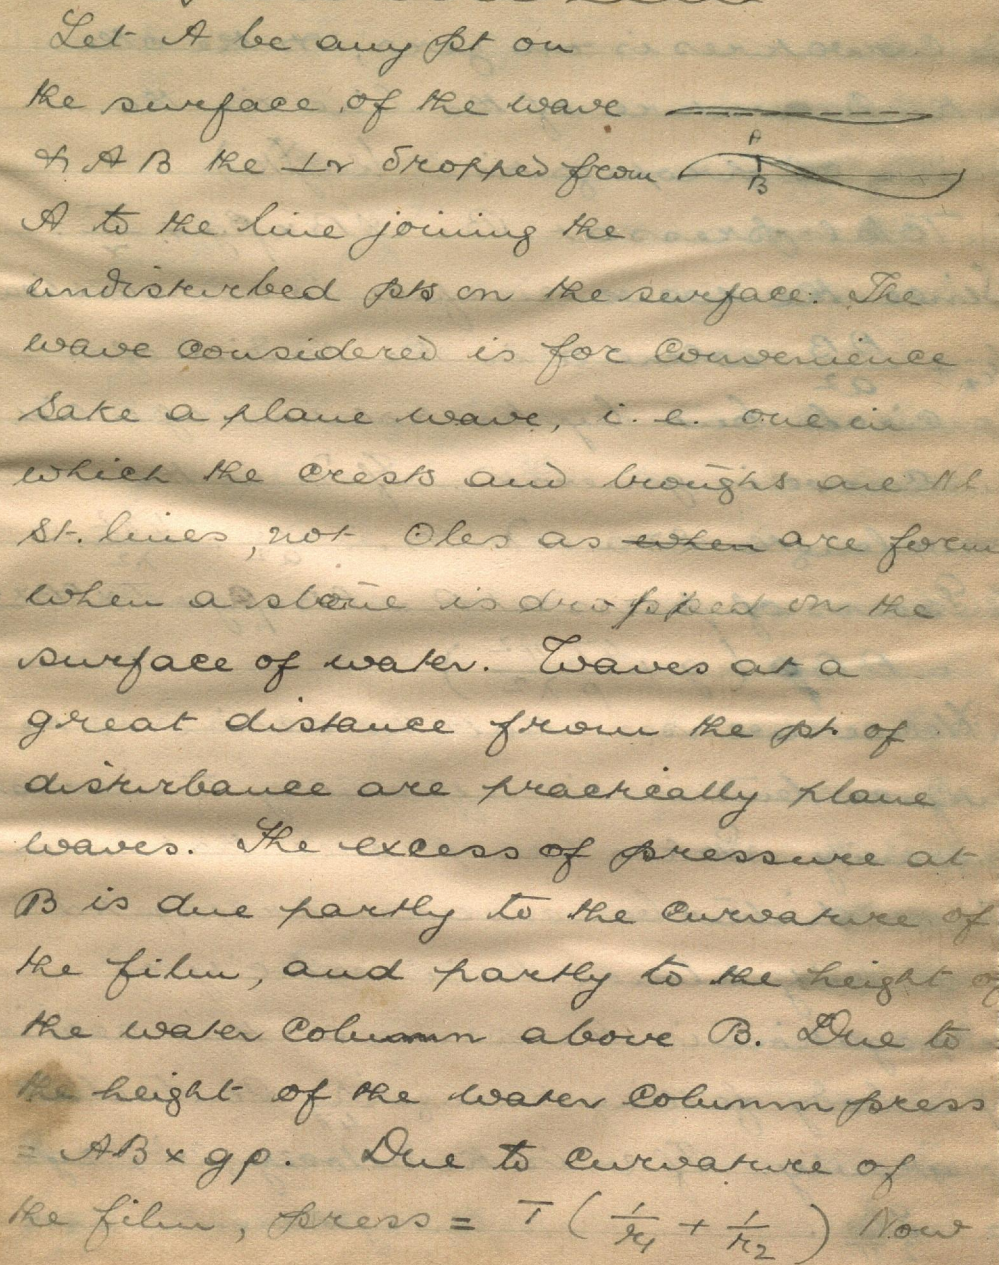 Let A be any pt on
the surface of the wave
& AB the ⊥r dropped from
A
B
A to the line joining the
undisturbed pts on the surface. The
wave considered is for convenience
sake a plane wave, i.e. one in
which the crests and troughs are ||l
St. lines, not Oles as when are form
when a stone is dropped on the
surface of water. Waves at a
great distance from the pt. of
disturbance are practically plane
waves. The excess of pressure at
B is due partly to the curvature of
the film, and partly to the height of
the water column above B. Due to
the height of the water column press
= AB × gρ. Due to curvature of
the film, press = T ( 1/r1 + 1/r2 ) Now